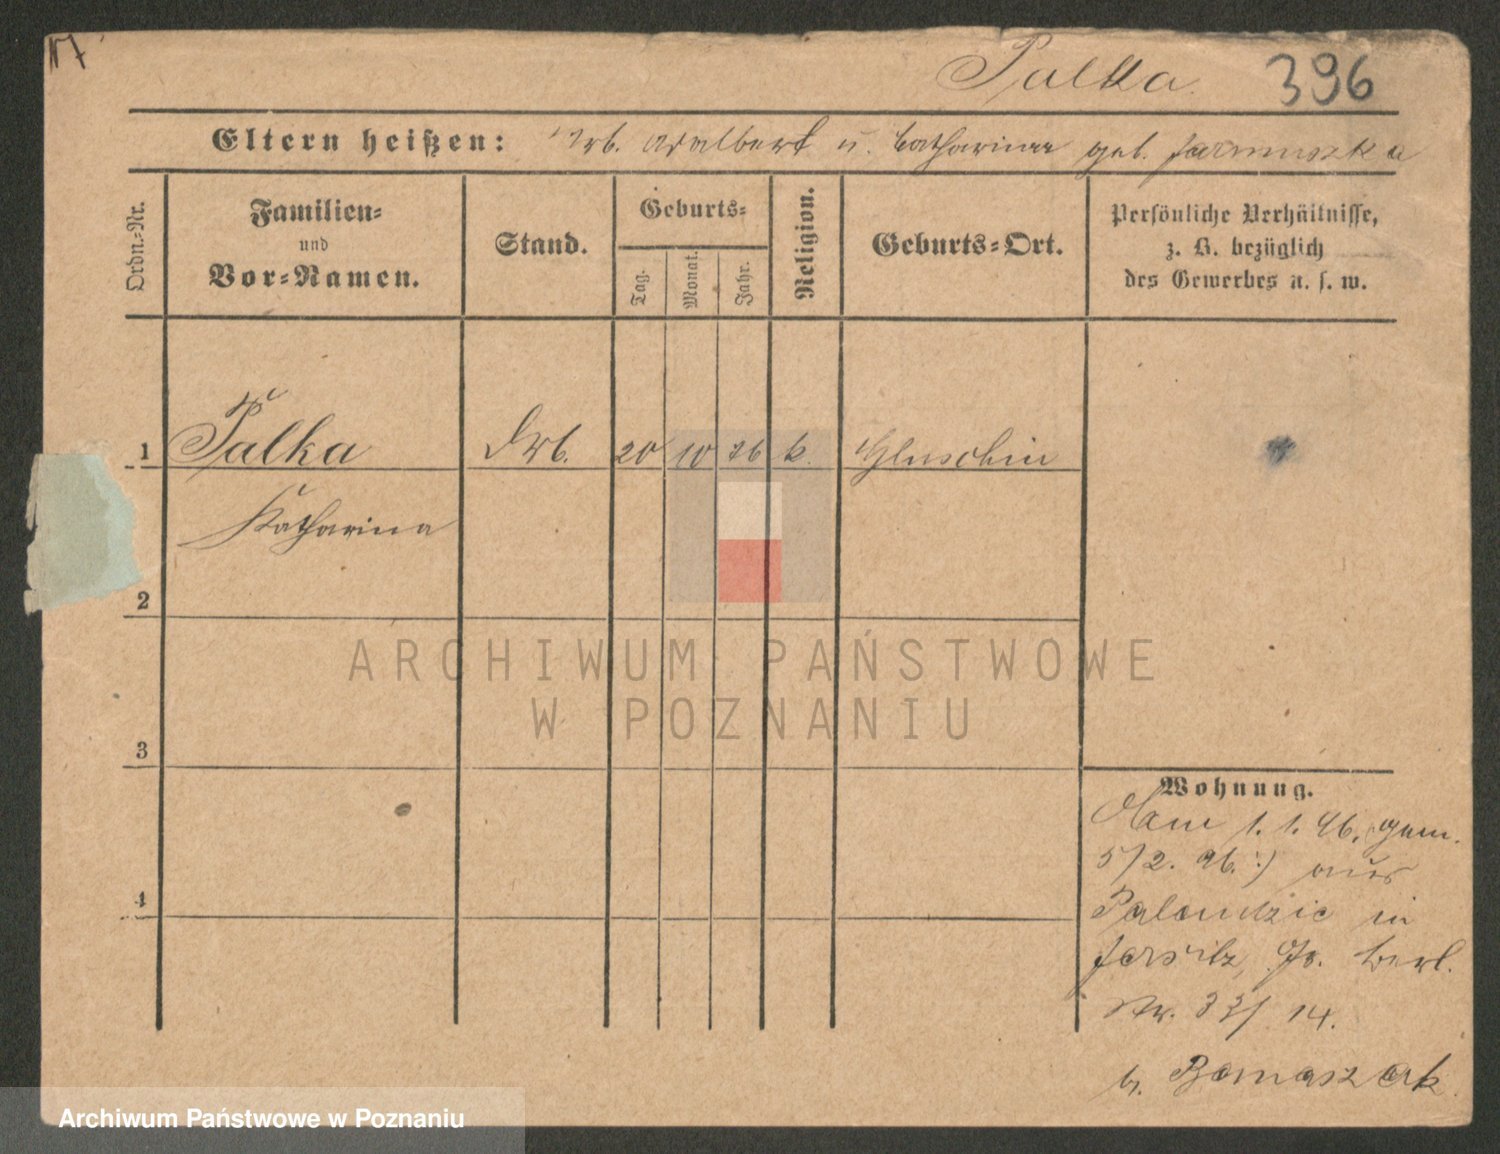 Palka.
396
Eltern heißen: Arb. Adalbert u. Catharina geb. Jarmuszka
Ordn.-Nr.
Familien-
und
Vor-Namen.
Stand.
Geburts-
Tag.
Monat.
Jahr.
Religion.
Geburts-Ort.
Persönliche Verhältnisse,
z. B. bezüglich
des Gewerbes u. s. w.
1 Palka Arb. 20 10 76 k. Gluschin
Katharina
2
3
4
Wohnung.
1. 1. 96. gem.
5/2. 96.:) aus
Palendzie in
Jersitz, Gr. Berl.
Nr. 33/14.
b. Bomaszak
ARCHIWUM PAŃSTWOWE
W POZNANIU
Archiwum Państwowe w Poznaniu